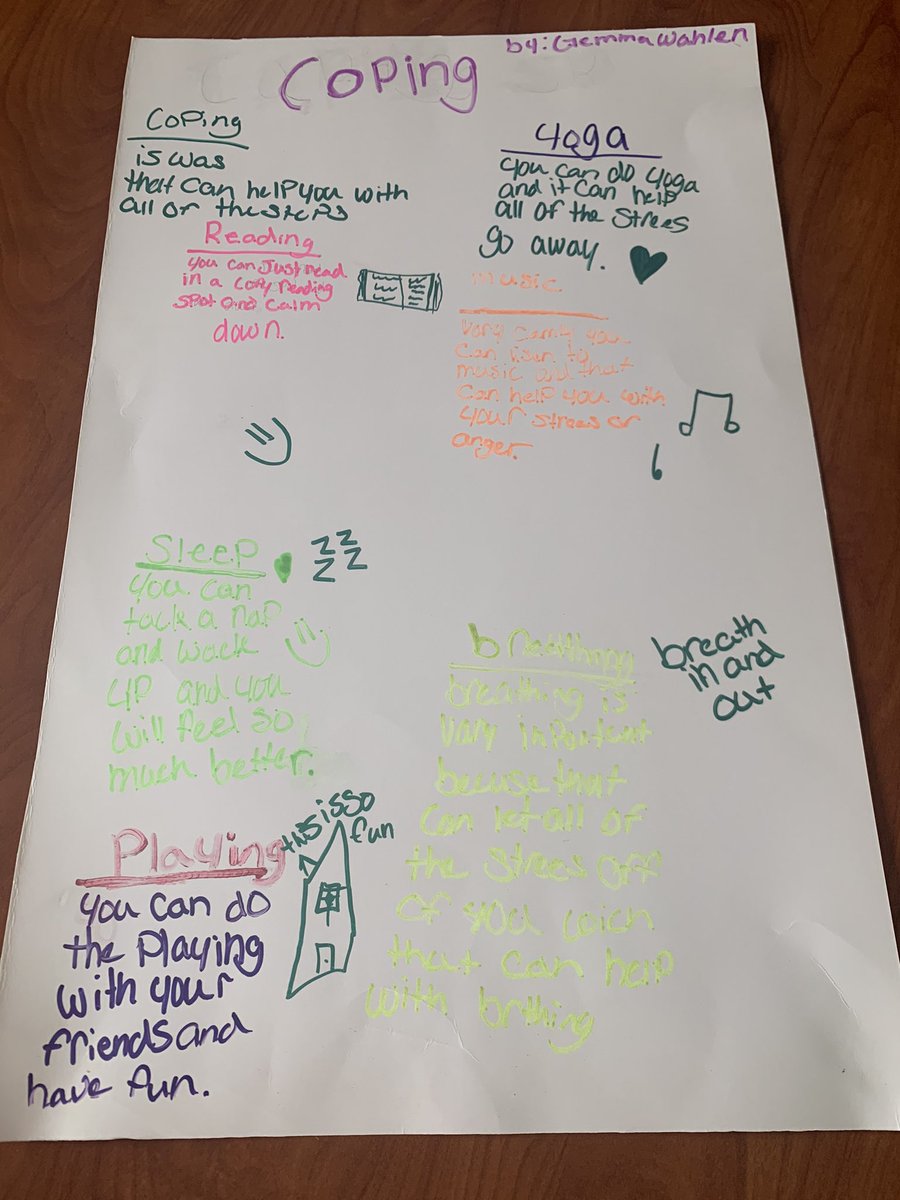 by: Gemma Wahlen
Coping
Coping
is was
that can help you with
all of the steps
Reading
you can Just read
in a cozy reading
spot and calm
down.
Yoga
you can do yoga
and it can help
all of the strees
go away.
music
Vary camly you
can lisen to
music and that
can help you with
your strees or
anger.
Sleep
zz
zz
you can
tack a nap
and wack
up and you
will feel so
much better.
breathing
breath
in and
out
breathing is
vary inportent
becuse that
can let all of
the strees off
of you wich
that can help
with brthing
Playing
this is so
fun
you can do
the Playing
with your
friends and
have fun.